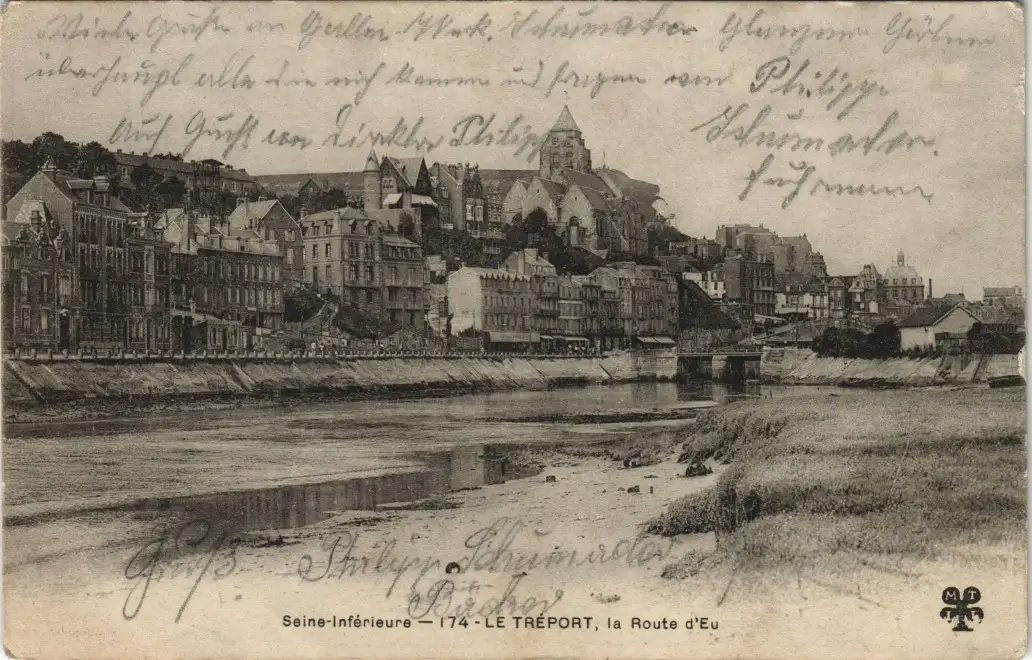 Viele Grüße an Galler Merk. Schumacher Glanzner Görtner
überhaupt alle die nich kennen und fragen von Philipp
Auch Gruß von Direkter Philipp
Schumacher.
Fuhrmann
Gruß Philipp Schumacher
Bäcker
Seine-Inférieure — 174 - LE TRÉPORT, la Route d'Eu
M T
I L